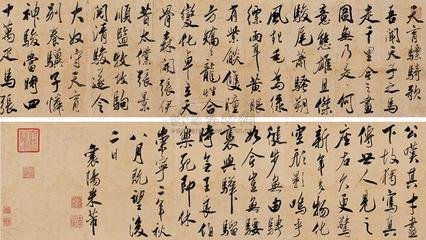 天育驃騎歌
吾聞天子之馬
走千里今之畫
圖無乃是是何
意態雄且傑
駿尾蕭梢朔
風起毛為綠
縹兩耳黃眼
有紫燄雙瞳
方矯矯龍性合
變化卓立天
骨森開張伊
昔太僕張景
順監牧攻駒
閱清駿遂令
大奴守天育
別養驥子憐
神駿當時四
十萬匹馬張
公嘆其才盡
下故獨寫真
傳世人見之
座右久更
新年多物化
空形影嗚乎
健步無由騁
如今豈無騕
褭與驊騮
時無王良伯
樂死即休
崇寧二年秋
八月既望後
二日
襄陽米芾